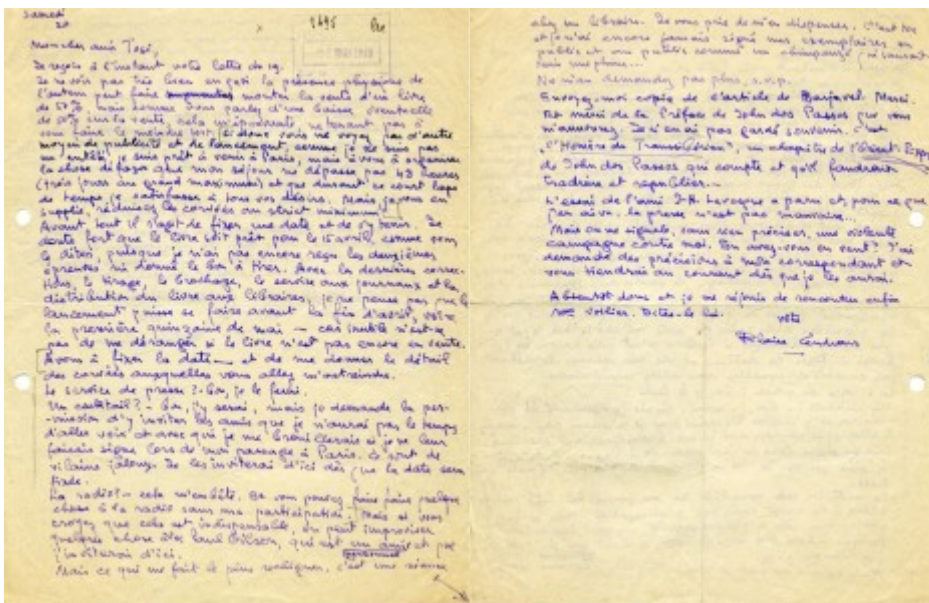 Samedi
20
2495
Mon cher ami Tosi,
Je reçois à l'instant votre lettre du 19.
Je ne vois pas très bien en quoi la présence physique de
l'auteur peut faire augmenter monter la vente d'un livre
de 50%, mais comme vous parlez d'une baisse éventuelle
de 50% sur la vente, cela m'épouvante, ne tenant pas à
vous faire le moindre tort, si donc vous ne voyez pas d'autre
moyen de publicité et de lancement, comme je ne suis pas
un entêté, je suis prêt à venir à Paris, mais à vous d'organiser
la chose de façon que mon séjour ne dépasse pas 48 heures
(trois jours au grand maximum) et que durant ce court laps
de temps je satisfasse à tous vos désirs. Mais, je vous en
supplie, réduisez les corvées au strict minimum.
Avant tout il s'agit de fixer une date et de s'y tenir. Je
doute fort que le livre soit prêt pour le 15 avril, comme vous
le dites, puisque je n'ai pas encore reçu les deuxièmes
épreuves ni donné le bon à tirer. Avec les dernières correc-
tions, le tirage, le brochage, le service aux journaux et la
distribution du livre aux libraires, je ne pense pas que le
lancement puisse se faire avant la fin d'avril, voire
la première quinzaine de mai — car inutile n'est-ce
pas de me déranger si le livre n'est pas encore en vente.
À vous à fixer la date — et de me donner le détail
des corvées auxquelles vous allez m'astreindre.
Le service de presse ? - Bon, je le ferai.
Un cocktail ? - Bon, j'y serai, mais je demande la per-
mission d'y inviter les amis que je n'aurai pas le temps
d'aller voir et avec qui je me brouillerais si je ne leur
faisais signe lors de mon passage à Paris. Ce sont de
vilains jaloux. Je les inviterai d'ici dès que la date sera
fixée.
La radio ? - cela m'embête. Si vous pouvez faire faire quelque
chose à la radio sans ma participation. Mais si vous
croyez que cela est indispensable, on peut improviser
quelque chose avec Paul Gilson, qui est un ami et que
personnel
j'inviterai d'ici.
Mais ce qui me fait le plus rechigner, c'est une séance
chez un libraire. Je vous prie de m'en dispenser.
et je n'ai encore jamais signé mes exemplaires en
public et un public comme un chimpanzé qui saurait
tenir une plume...
Ne m'en demandez pas plus, s.v.p.
Envoyez-moi copie de l'article de Barjavel. Merci.
De même de la Préface de John dos Passos que vous
m'annoncez. Je n'en ai pas gardé souvenir. C'est
"l'Homère du Transsibérien", un chapitre de l'Orient-Express
de John dos Passos qui compte et qu'il faudrait
traduire et republier...
L'essai de l'ami J.H. Levesque a paru et, pour ce que
j'en ai vu, la presse n'est pas mauvaise...
Mais on me signale, sans rien préciser, une violente
campagne contre moi. En avez-vous eu vent ? J'ai
demandé des précisions à mon correspondant et
vous tiendrai au courant dès que je les aurai.
A bientôt donc et je me réjouis de rencontrer enfin
Vollier. Dites-le lui.
votre
Blaise Cendrars